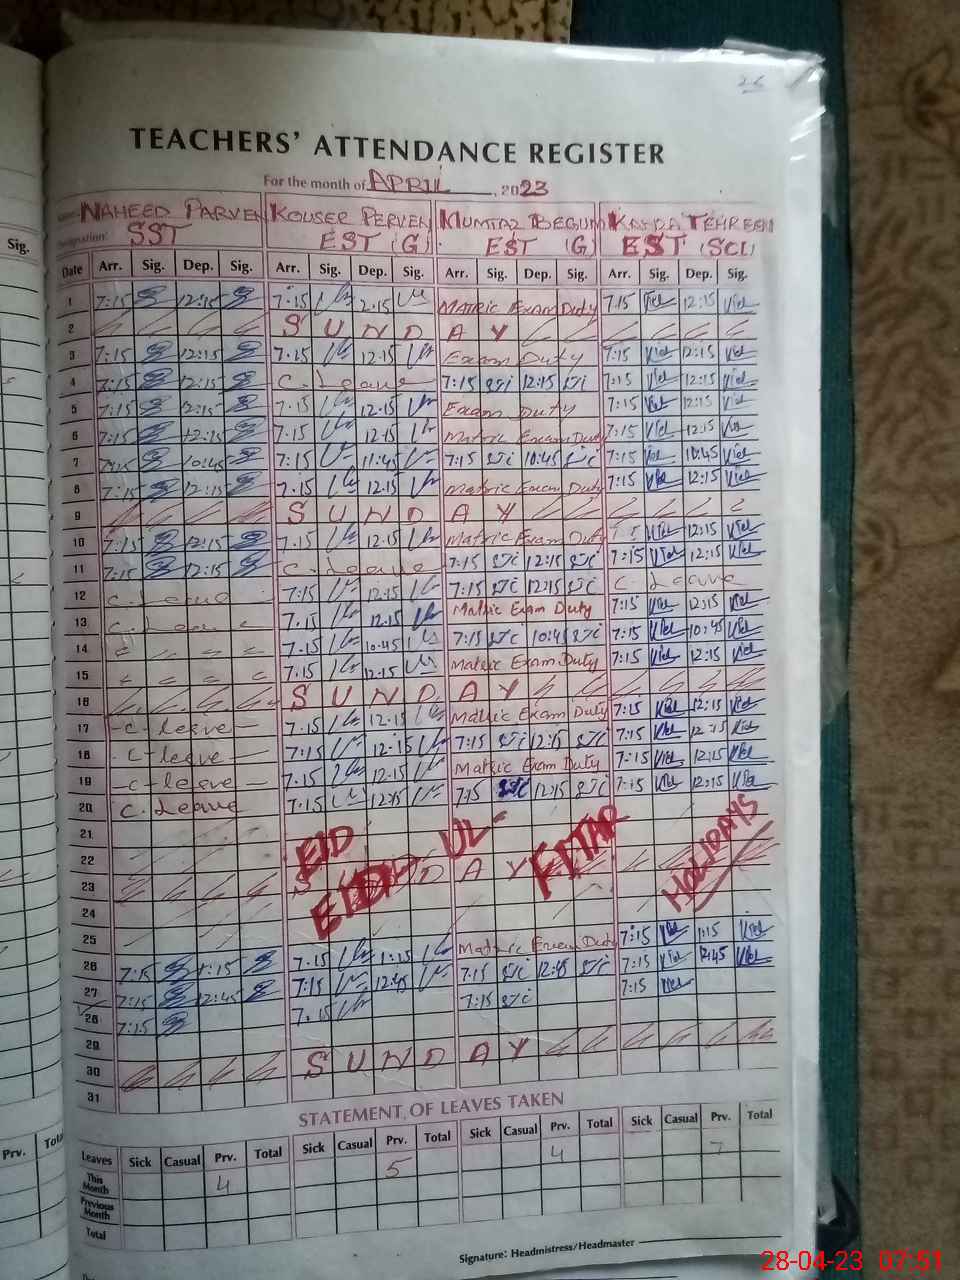 26
TEACHERS' ATTENDANCE REGISTER
For the month of APRIL, 2023
Sig.
NAHEED PARVEN KOUSER PERVEN MUMTAZ BEGUM TEHREEN
Designation: SST EST (G) EST (G) EST (SCI)
Date Arr. Sig. Dep. Sig. Arr. Sig. Dep. Sig. Arr. Sig. Dep. Sig. Arr. Sig. Dep. Sig.
1 7:15 12:15 7.15 2.15 Matric Exam Duty 7:15 12:15
2 S U N D A Y
3 7:15 12:15 7.15 12.15 Exam Duty 7:15 12:15
4 7:15 12:15 C. Leave 7:15 12:15 7:15 12:15
5 7:15 12:15 7.15 12.15 Exam Duty 7:15 12:15
6 7:15 12:15 7.15 12.15 Matric Exam Duty 7:15 12:15
7 10:45 7:15 11:45 7:15 10:45 7:15 10:45
8 7:15 12:15 7.15 12.15 Matric Exam Duty 7:15 12:15
9 S U N D A Y
10 7:15 12:15 7.15 12.15 Matric Exam Duty 12:15
11 7:15 12:15 C. Leave 7:15 12:15 7:15 12:15
12 C. Leave 7:15 12.15 7:15 12:15 C. Leave
13 C. Leave 7.15 12.15 Matric Exam Duty 7:15 12:15
14 7.15 10:45 7:15 7:15 10:45
15 7.15 12.15 Matric Exam Duty 7:15 12:15
16 S U N D A Y
17 -C. leave- 7.15 12.15 Matric Exam Duty 7:15 12:15
18 C-leave- 7:15 12.15 7:15 12:15 7:15 12:15
19 -C-leave- 7.15 12.15 Matric Exam Duty 7:15 12:15
20 C. Leave 7:15 12:15 7:15 12:15 7:15 12:15
21 EID UL- FITAR HOLIDAYS
22
23 S U N D A Y
24 EID
25
26 7:15 1:15 7.15 1:15 Matric Exam Duty 7:15 1:15
27 7:15 12:45 7:15 12:45 7:15 12:45 7:15 12:45
28 7:15 7.15 7:15 7:15
29
30 S U N D A Y
31
STATEMENT OF LEAVES TAKEN
Leaves Sick Casual Prv. Total Sick Casual Prv. Total Sick Casual Prv. Total Sick Casual Prv. Total
This Month 4 5 4 7
Previous Month
Total
Prv. Total
Signature: Headmistress/Headmaster
28-04-23 07:51